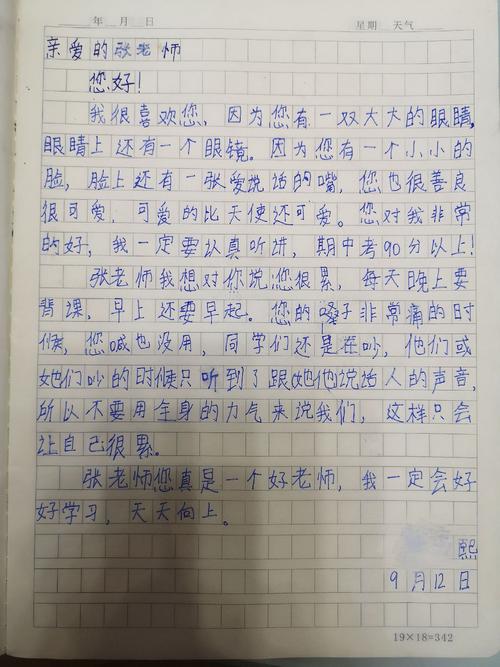 年 月 日 星期 天气
亲爱的张老师
您好！
我很喜欢您，因为您有一双大大的眼睛，
眼睛上还有一个眼镜。因为您有一个小小的
脸，脸上还有一张爱说话的嘴，您也很善良
很可爱，可爱的比天使还可爱。您对我非常
的好，我一定要认真听讲，期中考90分以上！
张老师我想对你说：您很累，每天晚上要
背课，早上还要早起。您的嗓子非常痛的时
候，您喊也没用，同学们还是在吵，他们或
她们吵的时候只听到了跟她他说话人的声音，
所以不要用全身的力气来说我们，这样只会
让自己很累。
张老师您真是一个好老师，我一定会好
好学习，天天向上。
熙
9月12日
19×18=342